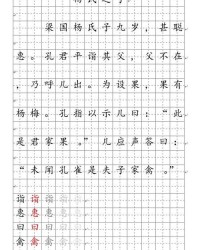 杨氏之子
梁国杨氏子九岁，甚聪
惠。孔君平诣其父，父不在
，乃呼儿出。为设果，果有
杨梅。孔指以示儿曰：“此
是君家果。”儿应声答曰：
“未闻孔雀是夫子家禽。”
诣诣诣诣诣
惠惠惠惠惠
曰曰曰曰曰
禽禽禽禽禽